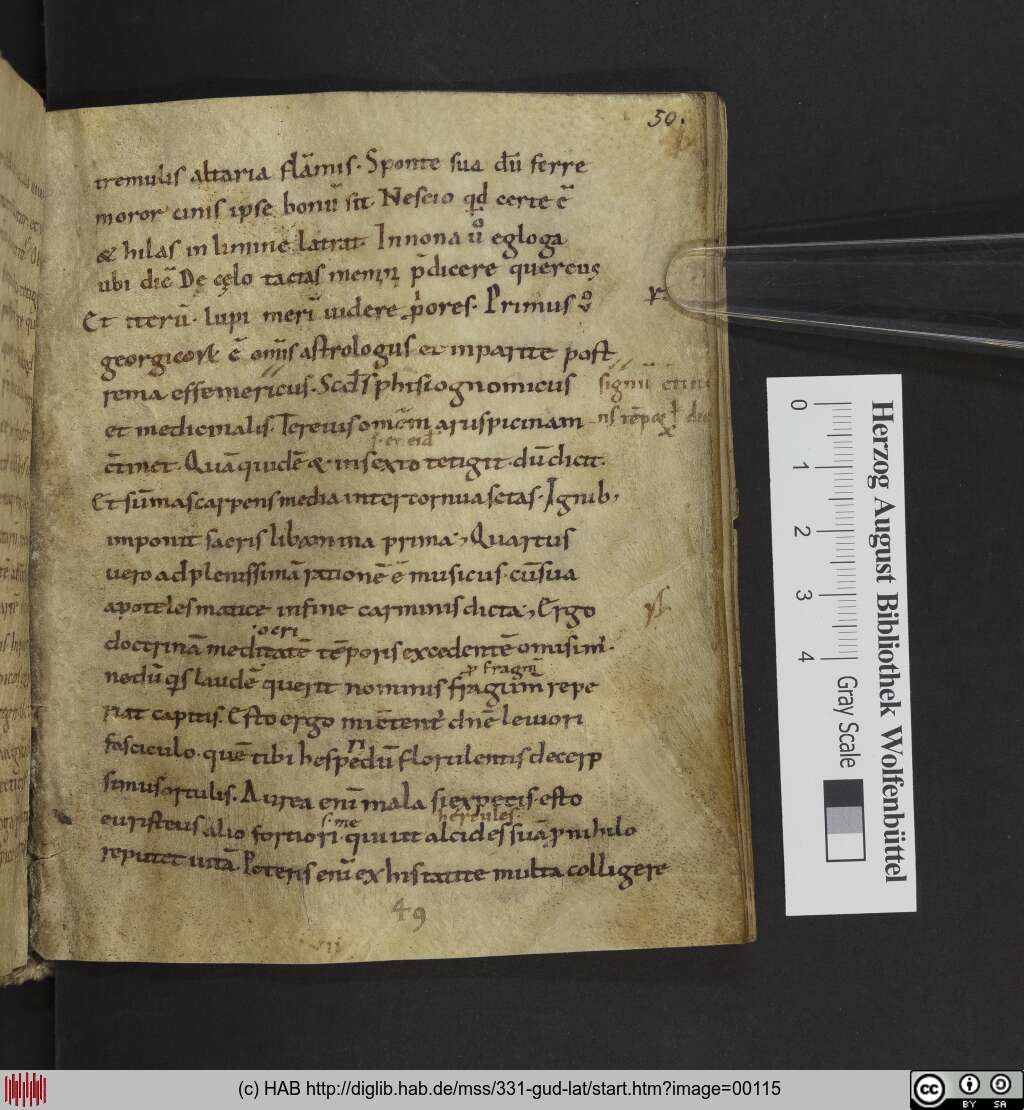 50.
tremulis altaria flāmis. Sponte sua dū ferre
moror cinis ipse. bonū sit. Nescio qd certe ē
& hilas in limine latrat. In nona u͛o egloga
ubi dic̄ De cęlo tactas meminr p̄dicere quercus
Et iterū. lupi meri uidere priores. Primus u͛o
georgicorū ē om̄is astrologus et in parte post
rema effemericus. Scd̄s phisiognomicus
signū
et medicinalis. Tercius om̄em aruspicinam
s. et eid
c̄tinet. Quā quidē & in sexto tetigit. dū dicit.
Et sūmas carpens media inter cornua setas. Ignib;
imponit sacris libamina prima; Quartus
uero ad plenissimā rationē ē musicus. cū sua
apotelesmatice in fine carminis dicta; Ergo
ocri
doctrinā meditatē tēporis excedentē omisim͛.
p fragm̄
nedū qis laudē querit nominis fragium repe
riat capitis. Esto ergo mi ētent͛ dnē leuiori
ri
fasciculo. quē tibi hespedū florulentis decerp
simus ortulis. Aurea eni mala si expetis. esto
s. me hercules.
euristeus alio fortiori. qui ut alcides suā p nihilo
reputet uitā. Poteris eni ex his tantte multa colligere
49
vii
0
1
2
3
4
Gray Scale
Herzog August Bibliothek Wolfenbüttel
(c) HAB http://diglib.hab.de/mss/331-gud-lat/start.htm?image=00115
cc
BY SA